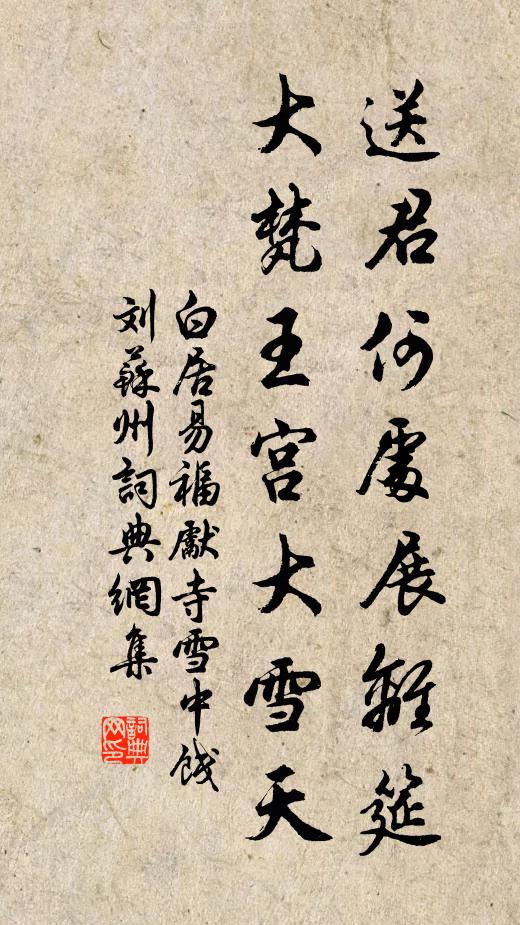 送君何處展離筵
大梵王宮大雪天
白居易福獻寺雪中餞
刘蘇州詞典網集
詞典
网印